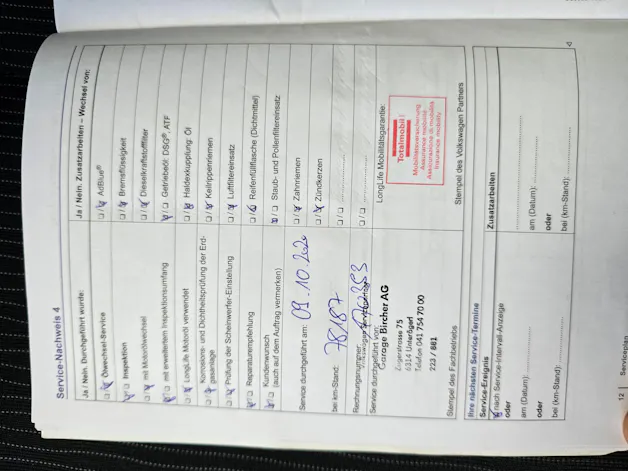 Service-Nachweis 4
Ja / Nein. Durchgeführt wurde:
Ölwechsel-Service
Inspektion
mit Motorölwechsel
mit erweitertem Inspektionsumfang
LongLife Motoröl verwendet
Korrosions- und Dichtheitsprüfung der Erd-
gasanlage
Prüfung der Scheinwerfer-Einstellung
Reparaturempfehlung
Kundenwunsch
(auch auf dem Auftrag vermerken)
Service durchgeführt am: 09.10.2020
bei km-Stand: 78187
Rechnungsnummer:
Service durchgeführt von:
Garage Bircher AG
Zugerstrasse 75
6314 Unterägeri
Telefon 041 754 70 00
223 / 881
Stempel des Fachbetriebs
Ja / Nein. Zusatzarbeiten – Wechsel von:
AdBlue®
Bremsflüssigkeit
Dieselkraftstofffilter
Getriebeöl: DSG®, ATF
Haldexkupplung: Öl
Keilrippenriemen
Luftfiltereinsatz
Reifenfüllflasche (Dichtmittel)
Staub- und Pollenfiltereinsatz
Zahnriemen
Zündkerzen
LongLife Mobilitätsgarantie:
Totalmobil!
Mobilitätsversicherung
Assurance mobilité
Assicurazione di mobilità
Insurance mobility
Stempel des Volkswagen Partners
Ihre nächsten Service-Termine
Service-Ereignis
nach Service-Intervall-Anzeige
oder
am (Datum):
oder
bei (km-Stand):
Zusatzarbeiten
am (Datum):
oder
bei (km-Stand):
12
Serviceplan